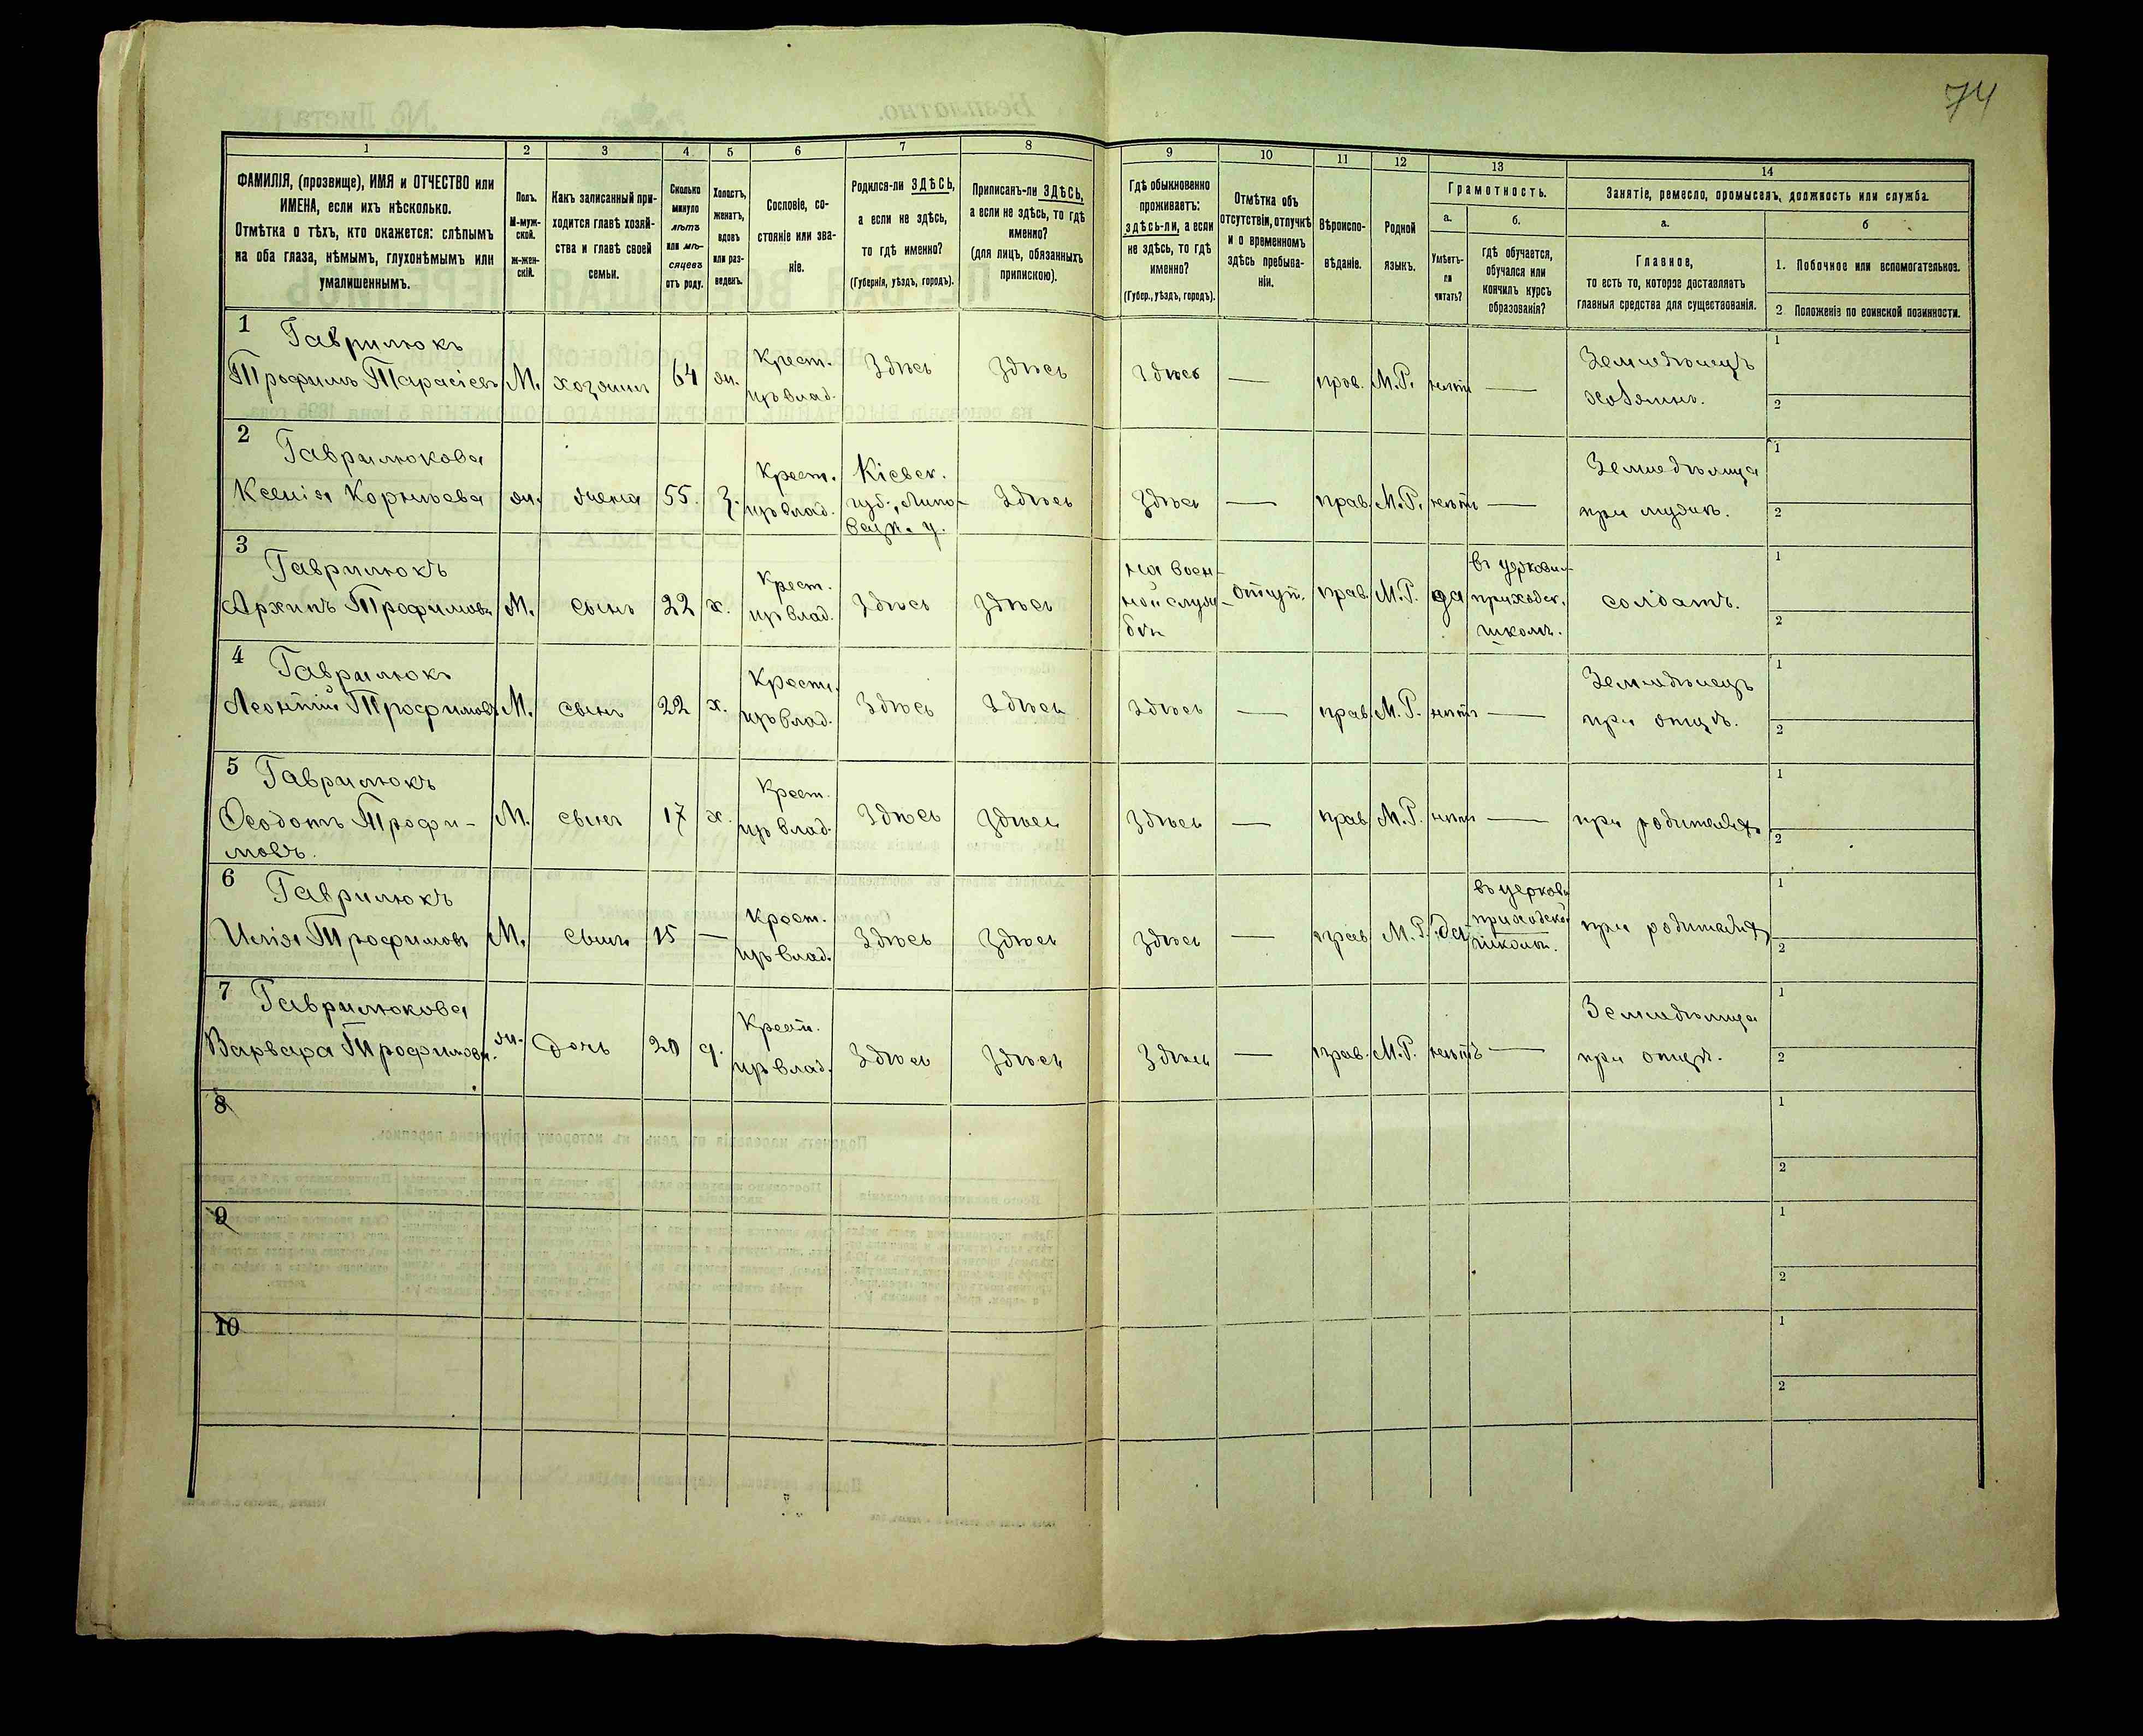 74
1 2 3 4 5 6 7 8 9 10 11 12 13 14
ФАМИЛІЯ, (прозвище), ИМЯ и ОТЧЕСТВО или
ИМЕНА, если ихъ нѣсколько.
Отмѣтка о тѣхъ, кто окажется: слѣпымъ
на оба глаза, нѣмымъ, глухонѣмымъ или
умалишеннымъ.
Полъ.
М-муж-
ской.
ж-жен-
скій.
Какъ записанный при-
ходится главѣ хозяй-
ства и главѣ своей
семьи.
Сколько
минуло
лѣтъ
или мѣ-
сяцевъ
отъ роду.
Холостъ,
женатъ,
вдовъ
или раз-
веденъ.
Сословіе, со-
стояніе или зва-
ніе.
Родился-ли ЗДѢСЬ,
а если не здѣсь,
то гдѣ именно?
(Губернія, уѣздъ, городъ).
Приписанъ-ли ЗДѢСЬ,
а если не здѣсь, то гдѣ
именно?
(для лицъ, обязанныхъ
припискою).
Гдѣ обыкновенно
проживаетъ:
здѣсь-ли, а если
не здѣсь, то гдѣ
именно?
(Губер., уѣздъ, городъ).
Отмѣтка объ
отсутствіи, отлучкѣ
и о временномъ
здѣсь пребыва-
ніи.
Вѣроиспо-
вѣданіе.
Родной
языкъ.
Грамотность.
а.
Умѣетъ-
ли
читать?
б.
Гдѣ обучается,
обучался или
кончилъ курсъ
образованія?
Занятіе, ремесло, промыселъ, должность или служба.
а.
Главное,
то есть то, которое доставляетъ
главныя средства для существованія.
б
1. Побочное или вспомогательное.
2. Положеніе по воинской повинности.
1 Гаврилюкъ
Трофимъ Тарасіевъ
М.
хозяинъ
64
ж.
Крест.
из влад.
Здѣсь
Здѣсь
Здѣсь
—
прав.
М.Р.
нѣтъ
—
Земледѣлецъ
хозяинъ.
1
2
2 Гаврилюкова
Ксенія Корнѣева
ж.
жена
55.
з.
Крест.
из влад.
Кіевск.
губ., Липо-
вецк. у.
Здѣсь
Здѣсь
—
прав.
М.Р.
нѣтъ
—
Земледѣлица
при мужѣ.
1
2
3 Гаврилюкъ
Архипъ Трофимовъ
М.
сынъ
22
х.
Крест.
из влад.
Здѣсь
Здѣсь
на воен-
ной служ-
бѣ
отсут.
прав.
М.Р.
да
въ церковн-
приходск.
школѣ.
солдатъ.
1
2
4 Гаврилюкъ
Леонтій Трофимовъ
М.
сынъ
22
х.
Крест.
из влад.
Здѣсь
Здѣсь
Здѣсь
—
прав.
М.Р.
нѣтъ
—
Земледѣлецъ
при отцѣ.
1
2
5 Гаврилюкъ
Ѳеодотъ Трофи-
мовъ.
М.
сынъ
17
х.
Крест.
из влад.
Здѣсь
Здѣсь
Здѣсь
—
прав.
М.Р.
нѣтъ
—
при родителяхъ
1
2
6 Гаврилюкъ
Илія Трофимовъ
М.
сынъ
15
—
Крест.
из влад.
Здѣсь
Здѣсь
Здѣсь
—
прав.
М.Р.
да
въ церковн
приходской
школѣ.
при родителяхъ
1
2
7 Гаврилюкова
Варвара Трофимова
ж.
дочь
20
д.
Крест.
из влад.
Здѣсь
Здѣсь
Здѣсь
—
прав.
М.Р.
нѣтъ
—
Земледѣлица
при отцѣ.
1
2
8
1
2
9
1
2
10
1
2